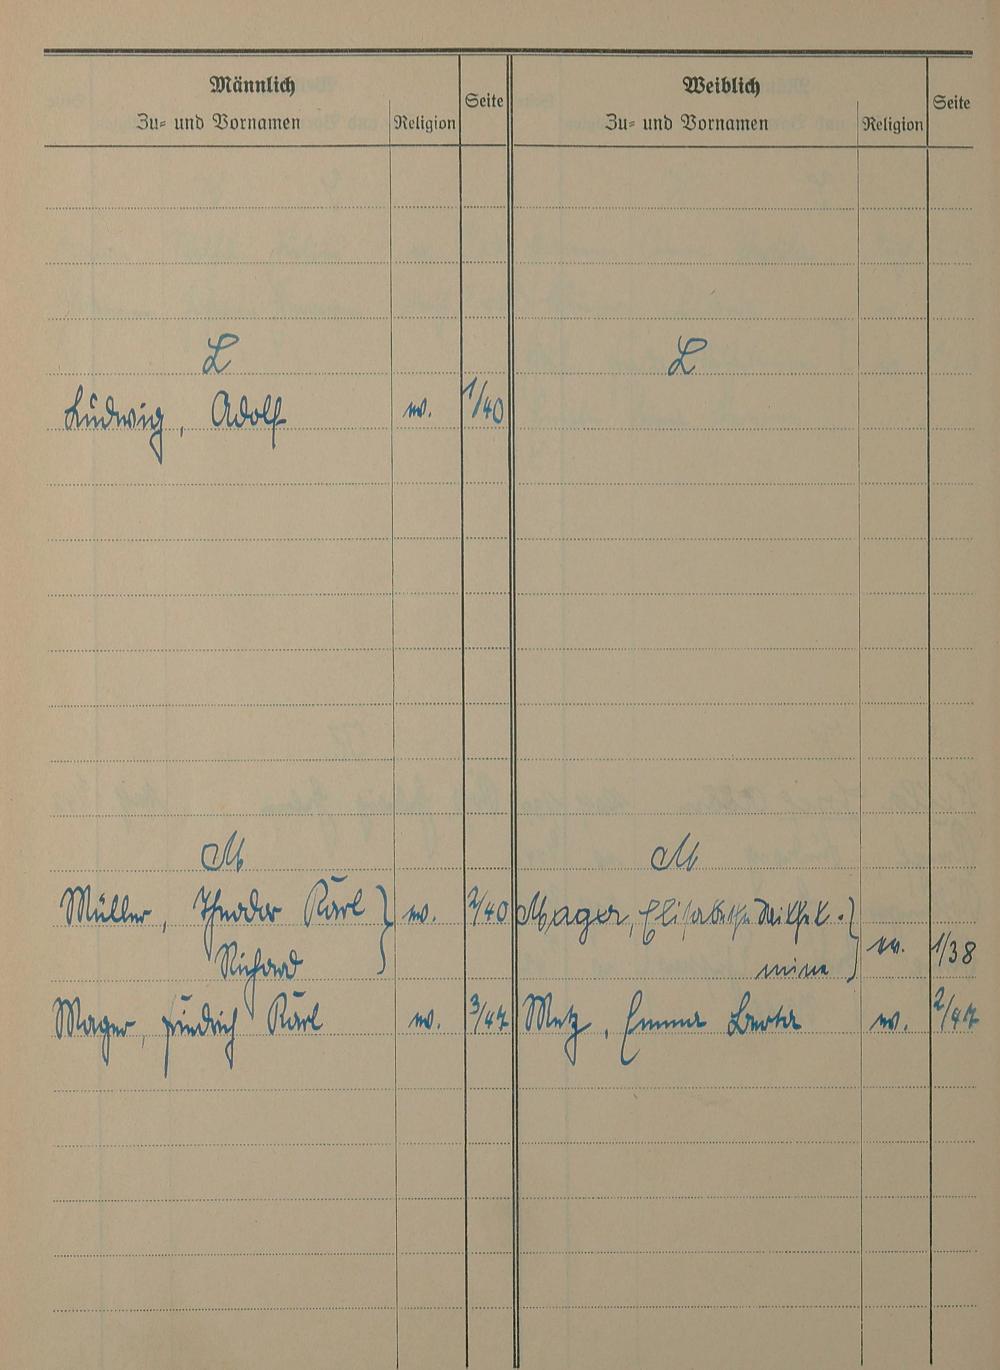 Männlich
Zu- und Vornamen
Religion
Seite
Weiblich
Zu- und Vornamen
Religion
Seite
L
L
Ludwig, Adolf ev. 1/40
M
M
Müller, Theodor Karl ev. 2/40
Richard
Mager, Elisabethe Wilhel-
mine ev. 1/38
Mager, Friedrich Karl ev. 3/47
Metz, Emma Berta ev. 2/47